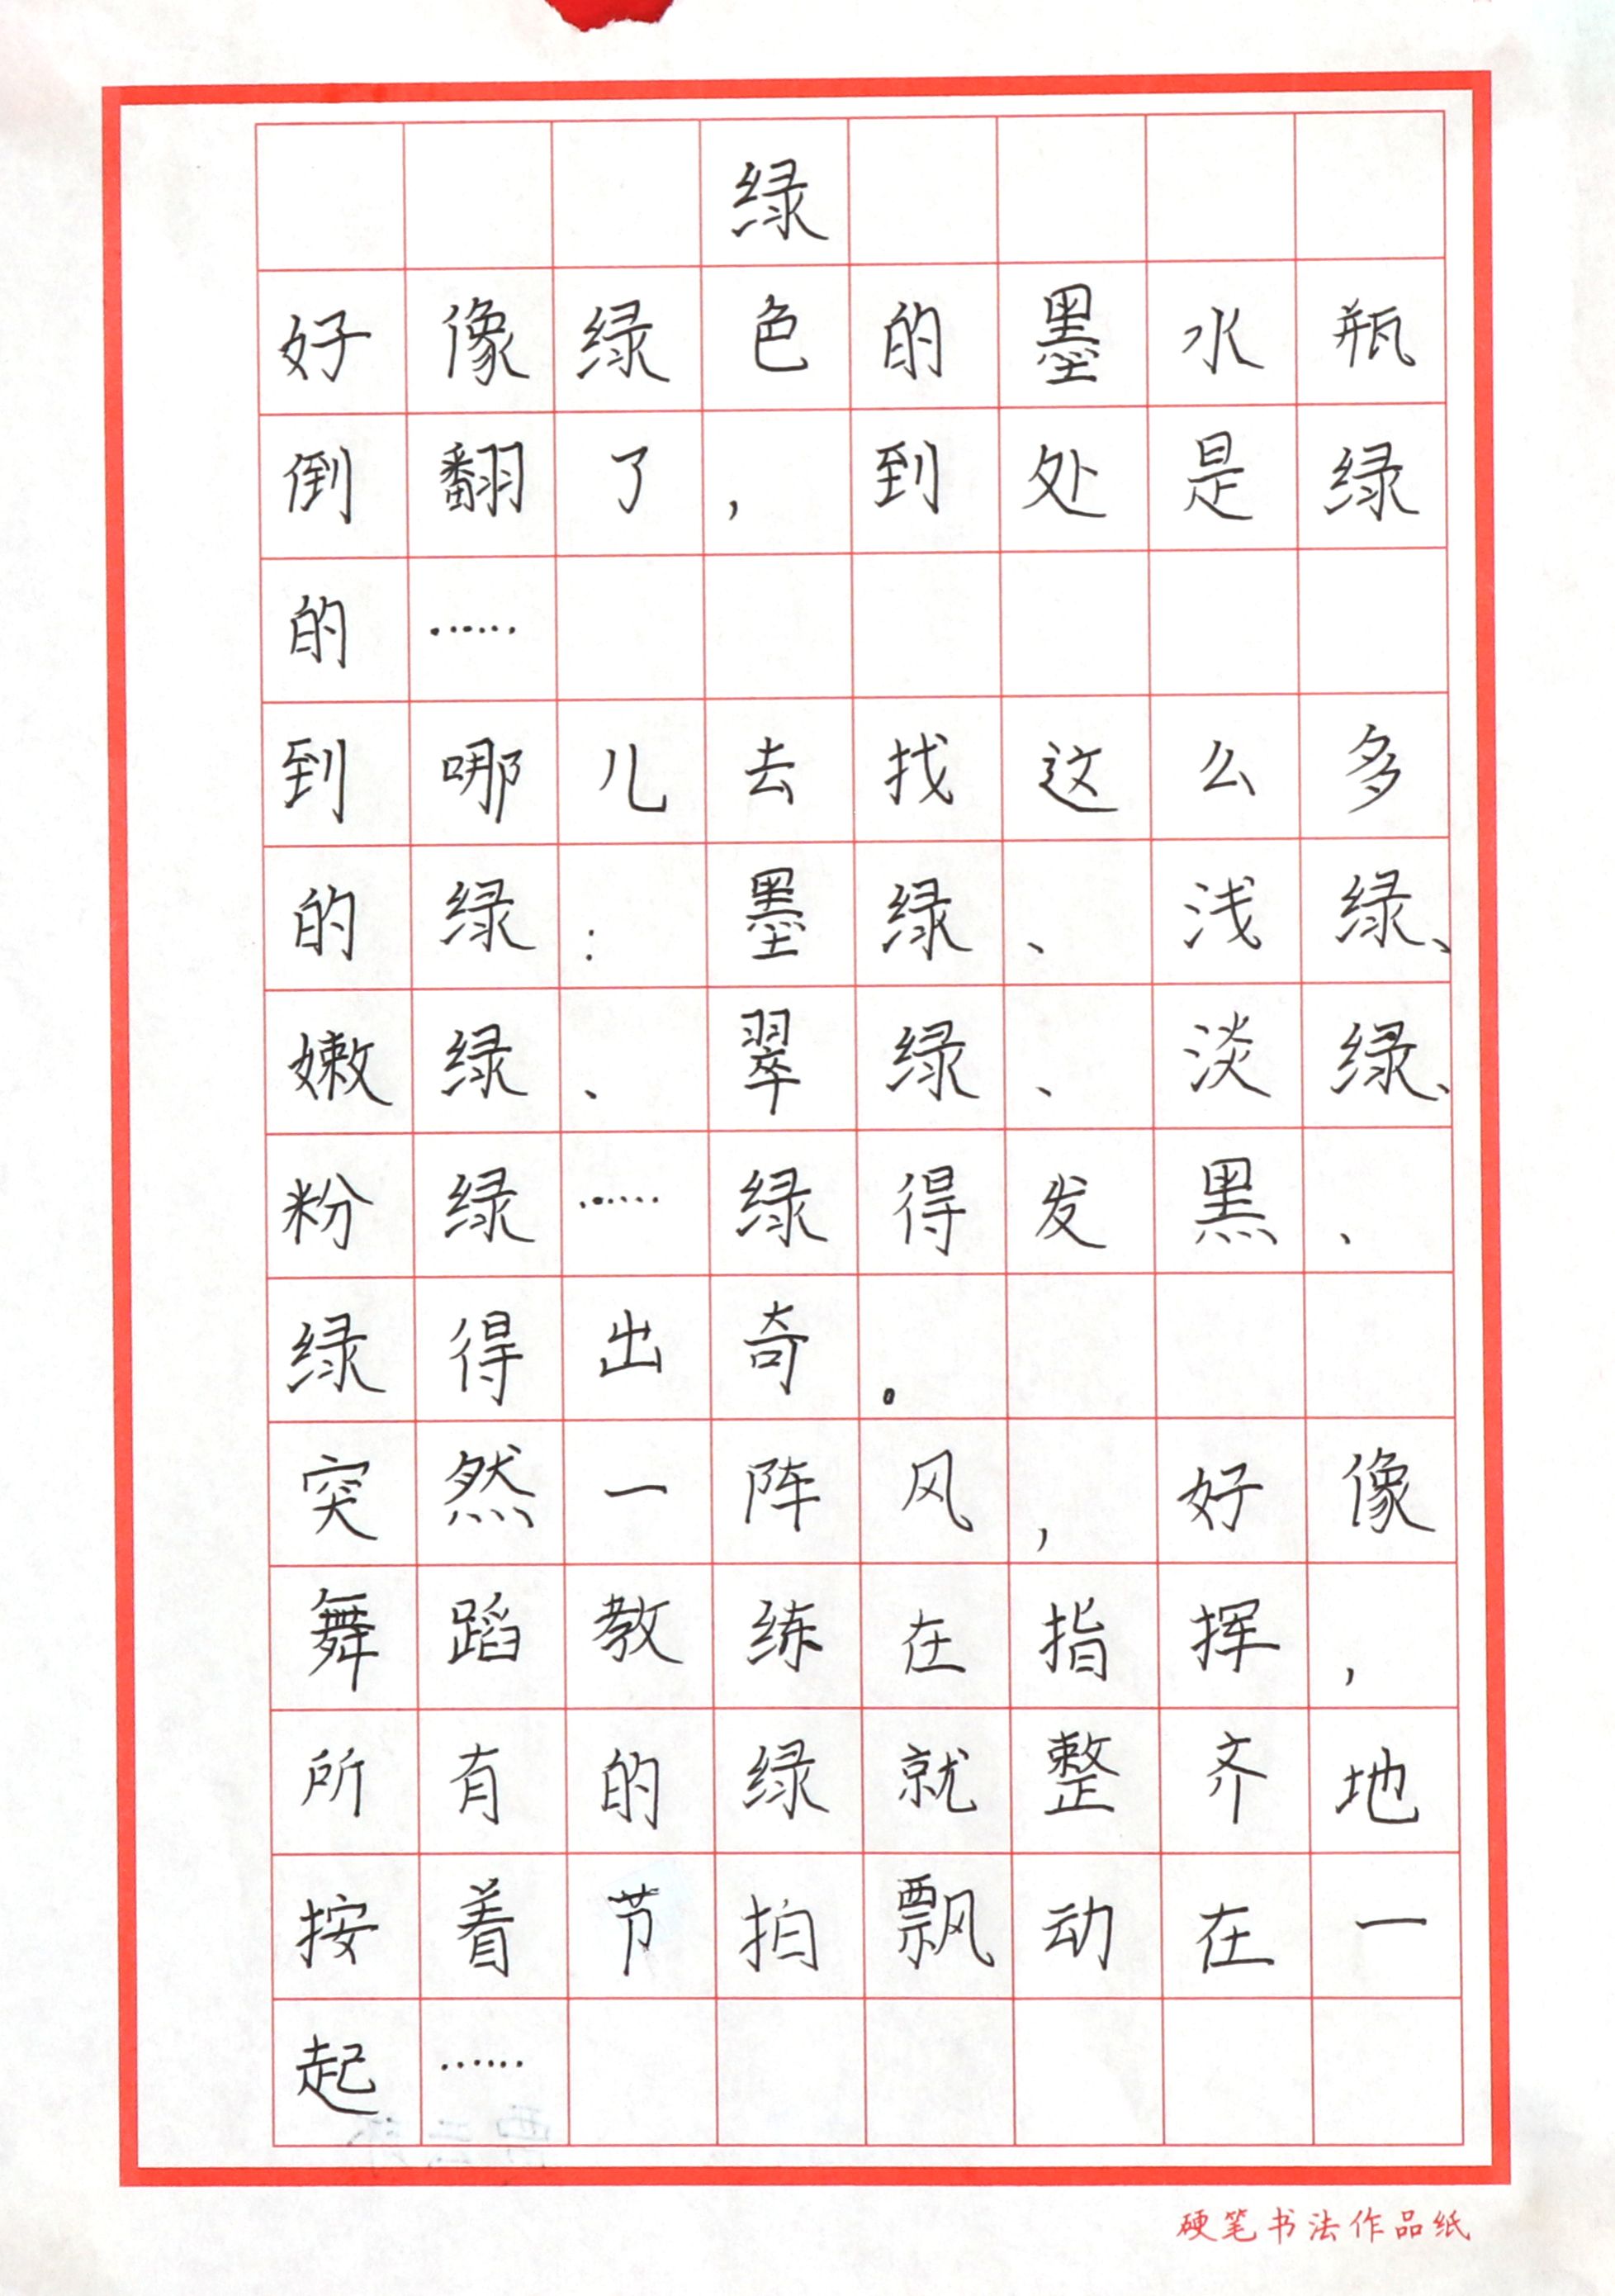 绿
好像绿色的墨水瓶
倒翻了，到处是绿
的……
到哪儿去找这么多
的绿：墨绿、浅绿、
嫩绿、翠绿、淡绿、
粉绿……绿得发黑、
绿得出奇。
突然一阵风，好像
舞蹈教练在指挥，
所有的绿就整齐地
按着节拍飘动在一
起……
硬笔书法作品纸